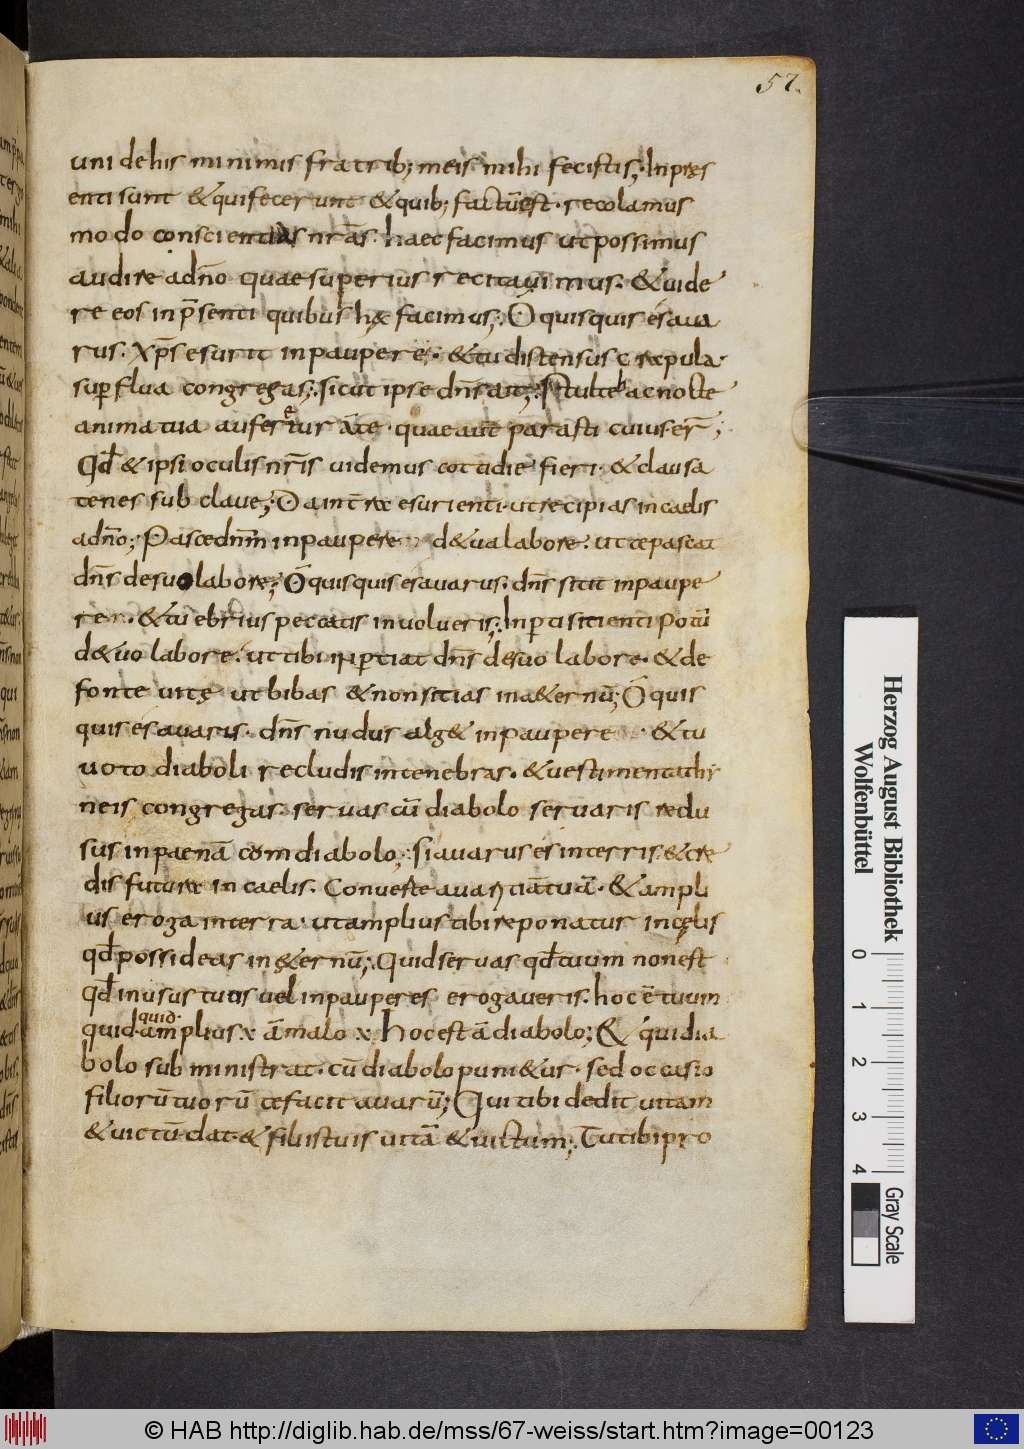 57.
uni dehis minimis fratrib; meis mihi fecistis; Inpręs
enti sunt &quifecerunt &quib; factū est. recolamus
modo conscientias nr̄as. haec facimus utpossimus
audire adn̄o quae superius recitauimus. &uide
re eos in p̄senti quibus hęc facimus; O quisquis és aua
rus. xp̄s esurit inpaupere. &tu distensus crepula
sup̱flua congregas; sicut ipse dn̄s ait; Stulte hac nocte
anima tua auferetur áte. quae aut̄ parasti cuius er̄;
Qd̄ & ipsi oculis nr̄is uidemus cotidie fieri. & clausa
tenes sub claue; Da in t̄re esurienti. ut recipias incaelis
adn̄o; Pasce dn̄m inpaupere d&ua labore. ut te pascat
dn̄s desuo labore; O quisquis es auarus. dn̄s sitit inpaupe
re. &tu ebrius peccatis inuolueris; Inp̱ti sitienti potū
d&uo labore. ut tibi inp̱tiat dn̄s desuo labore. &de
fonte uitę ut bibas &non sitias in a&ernū; O quis
quis és auaris. dn̄s nudus alg& inpaupere &tu
uoto diaboli recludis intenebras. &uestimenta thy
neis congregas. seruas cū diabolo seruaris redu
sus inpaenā com diabolo; si auarus és interris. &cre
dis future in caelis. Conuerte auaritiā tuā. & ampli
us eroga interra. ut amplius tibi reponatur incęlis
qd̄ possideas in ęternū; Quid seruas qd̄ tuum non est
Qd̄ inusus tuis uel inpauperes erogaueris. hoc ē tuum
quid.
quid. amplius x á malo x Hoc est á diabolo; & quidia
bolo sub ministrat. cū diabolo puni&ur. sed occasio
filiorū tuorū te facit auarū; Qui tibi dedit uitam
&uictū dat. & filiis tuis uitā &uictum; Tu tibi pro
Herzog August Bibliothek
Wolfenbüttel
0 1 2 3 4
Gray Scale
© HAB http://diglib.hab.de/mss/67-weiss/start.htm?image=00123